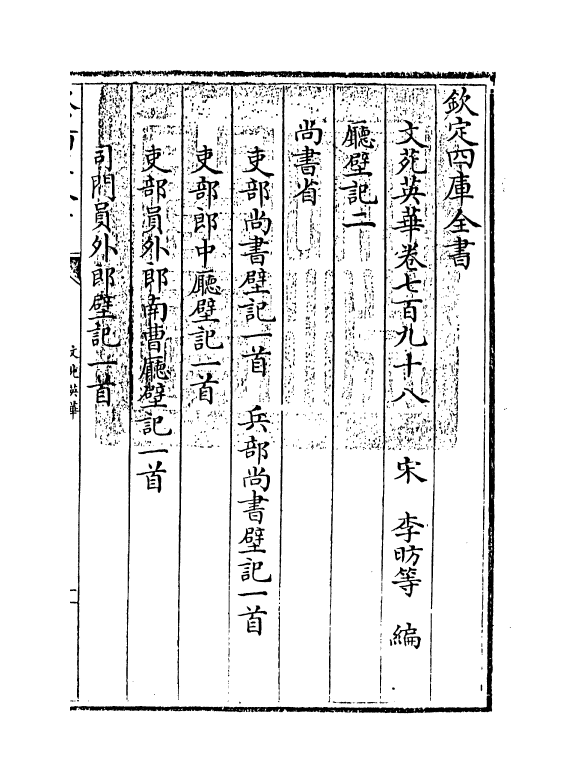 欽定四庫全書
文苑英華卷七百九十八　宋　李昉等　編
廳壁記二
尚書省
吏部尚書壁記一首　兵部尚書壁記一首
吏部郎中廳壁記一首
吏部員外郎南曹廳壁記一首
司門員外郎壁記一首
文苑英華